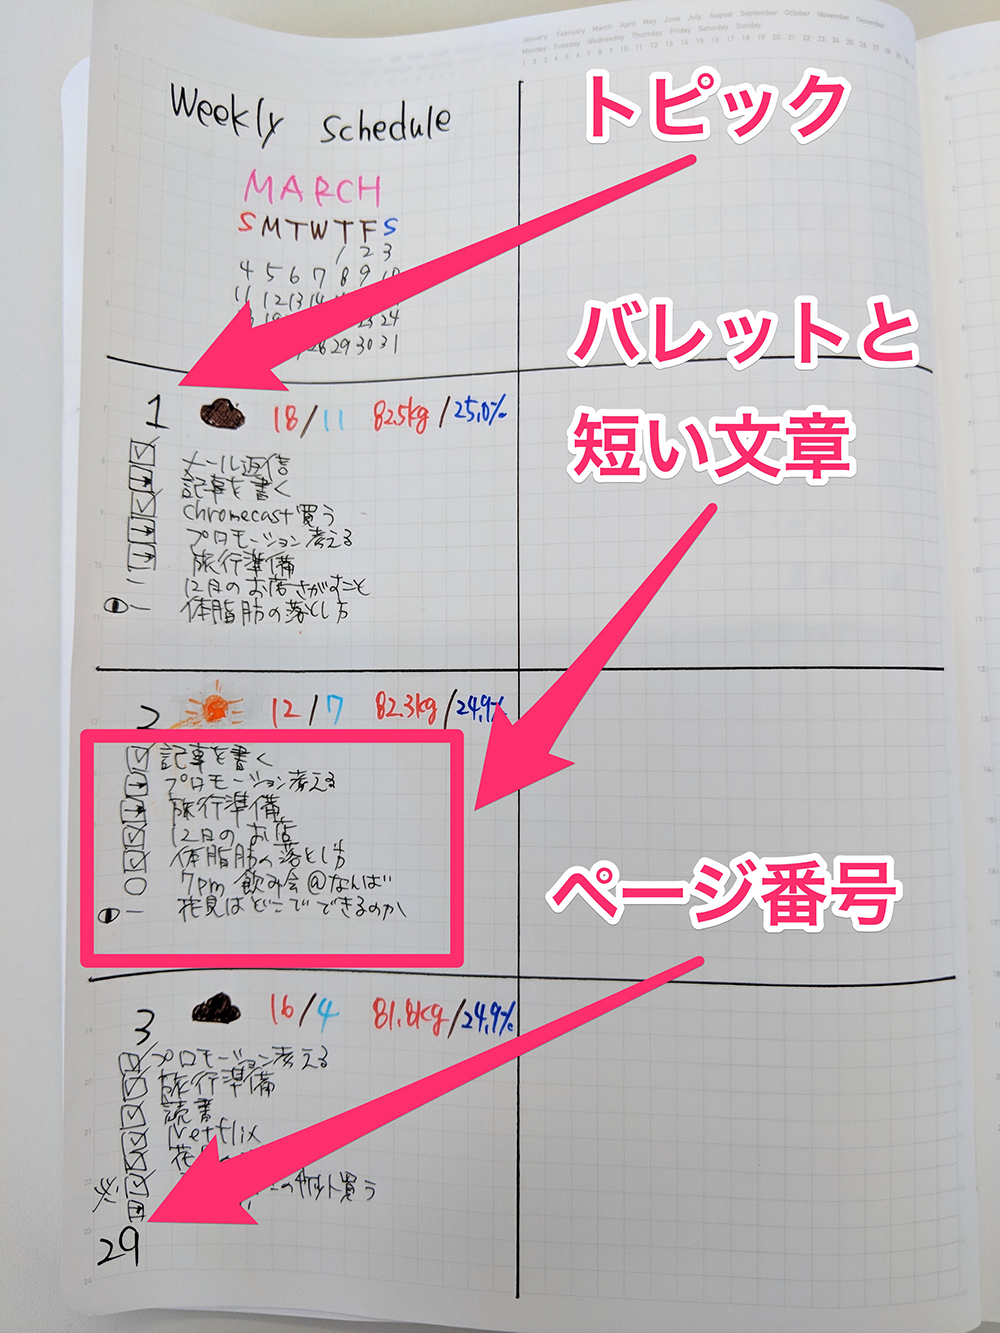 January February March April May June July August September October November December
Monday Tuesday Wednesday Thursday Friday Saturday Sunday
トピック
Weekly Schedule
MARCH
S M T W T F S
1 2 3
4 5 6 7 8 9 10
11 12 13 14
23 24
28 29 30 31
バレットと
短い文章
1 18/11 82.5kg/25.0%
メール返信
記事を書く
chromecast買う
プロモーション考える
旅行準備
12月のお店さがすこと
体脂肪の落とし方
2 12/7 82.3kg/24.9%
記事を書く
プロモーション考える
旅行準備
12月のお店
体脂肪の落とし方
7pm 飲み会@なんば
花見はどこでできるのか
ページ番号
3 16/4 81.8kg/24.9%
プロモーション考える
旅行準備
読書
Netflix
花
のチケット買う
29